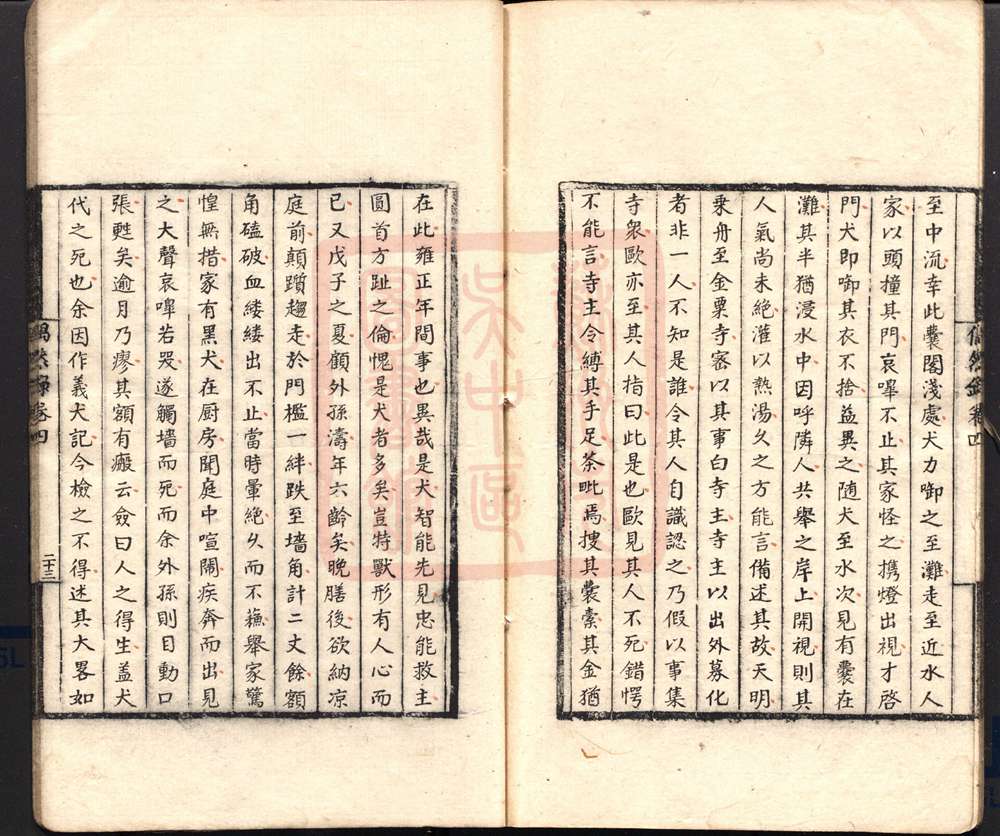 至中流幸此囊閣淺處犬力啣之至灘走至近水人
家以頭撞其門哀嘷不止其家怪之携燈出視才啓
門犬即啣其衣不捨益異之随犬至水次見有囊在
灘其半猶浸水中因呼隣人共舉之岸上開視則其
人氣尚未絶灌以熱湯久之方能言備述其故天明
乗舟至金粟寺宻以其事白寺主寺主以出外募化
者非一人不知是誰今其人自識認之乃假以事集
寺衆歐亦至其人指曰此是也歐見其人不死錯愕
不能言寺主令縛其手足荼毗焉搜其囊橐其金猶
偶然録卷四
在此雍正年間事也異哉是犬智能先見忠能救主
圓首方趾之倫愧是犬者多矣豈特獸形有人心而
已又戊子之夏顧外孫濤年六齡矣晚膳後欲納凉
庭前顛躓趨走於門檻一絆跌至墻角計二丈餘額
角磕破血縷縷出不止當時暈絶乆而不蘓舉家驚
惶無措家有黒犬在厨房聞庭中喧鬧疾奔而出見
之大聲哀嘷若哭遂觸墻而死而余外孫則目動口
張甦矣逾月乃瘳其額有瘢云僉曰人之得生盖犬
代之死也余因作義犬記今檢之不得述其大畧如
偶然録卷四
二十三